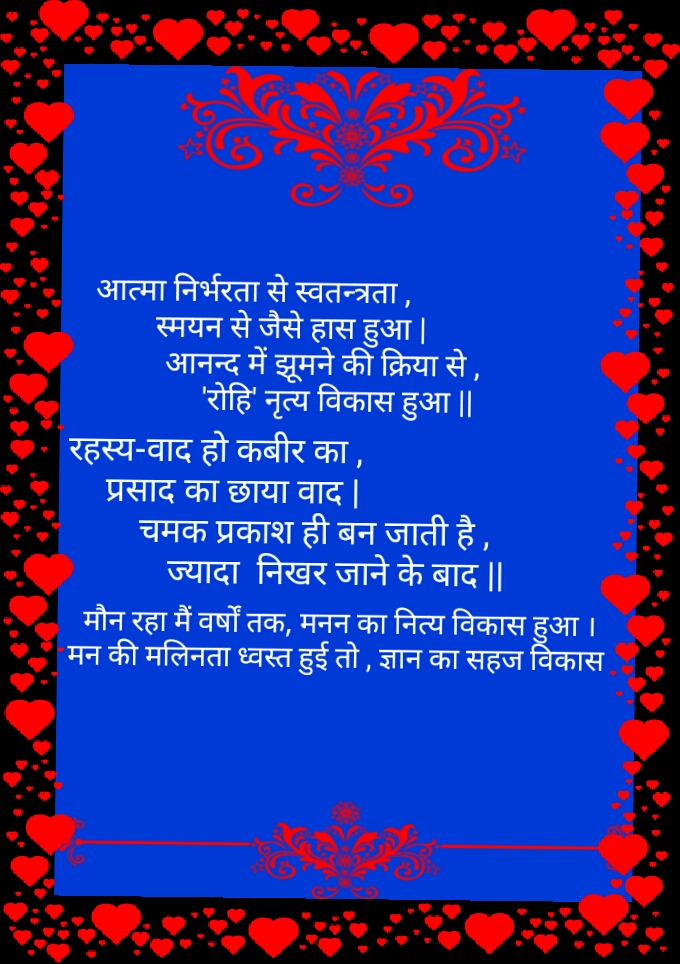 आत्मा निर्भरता से स्वतन्त्रता ,
स्मयन से जैसे हास हुआ |
आनन्द में झूमने की क्रिया से ,
'रोहि' नृत्य विकास हुआ ||
रहस्य-वाद हो कबीर का ,
प्रसाद का छाया वाद |
चमक प्रकाश ही बन जाती है ,
ज्यादा निखर जाने के बाद ||
मौन रहा मैं वर्षों तक, मनन का नित्य विकास हुआ ।
मन की मलिनता ध्वस्त हुई तो , ज्ञान का सहज विकास